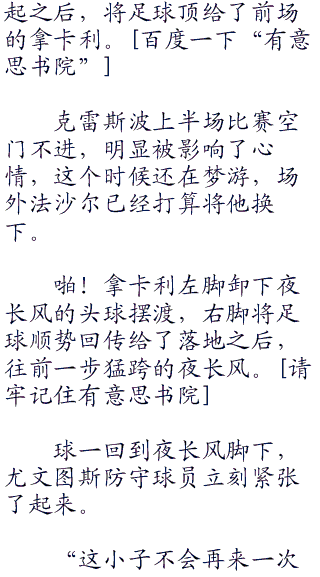 起之后，将足球顶给了前场
的拿卡利。[百度一下“有意
思书院”]
克雷斯波上半场比赛空
门不进，明显被影响了心
情，这个时候还在梦游，场
外法沙尔已经打算将他换
下。
啪！拿卡利左脚卸下夜
长风的头球摆渡，右脚将足
球顺势回传给了落地之后，
往前一步猛跨的夜长风。[请
牢记住有意思书院]
球一回到夜长风脚下，
尤文图斯防守球员立刻紧张
了起来。
“这小子不会再来一次